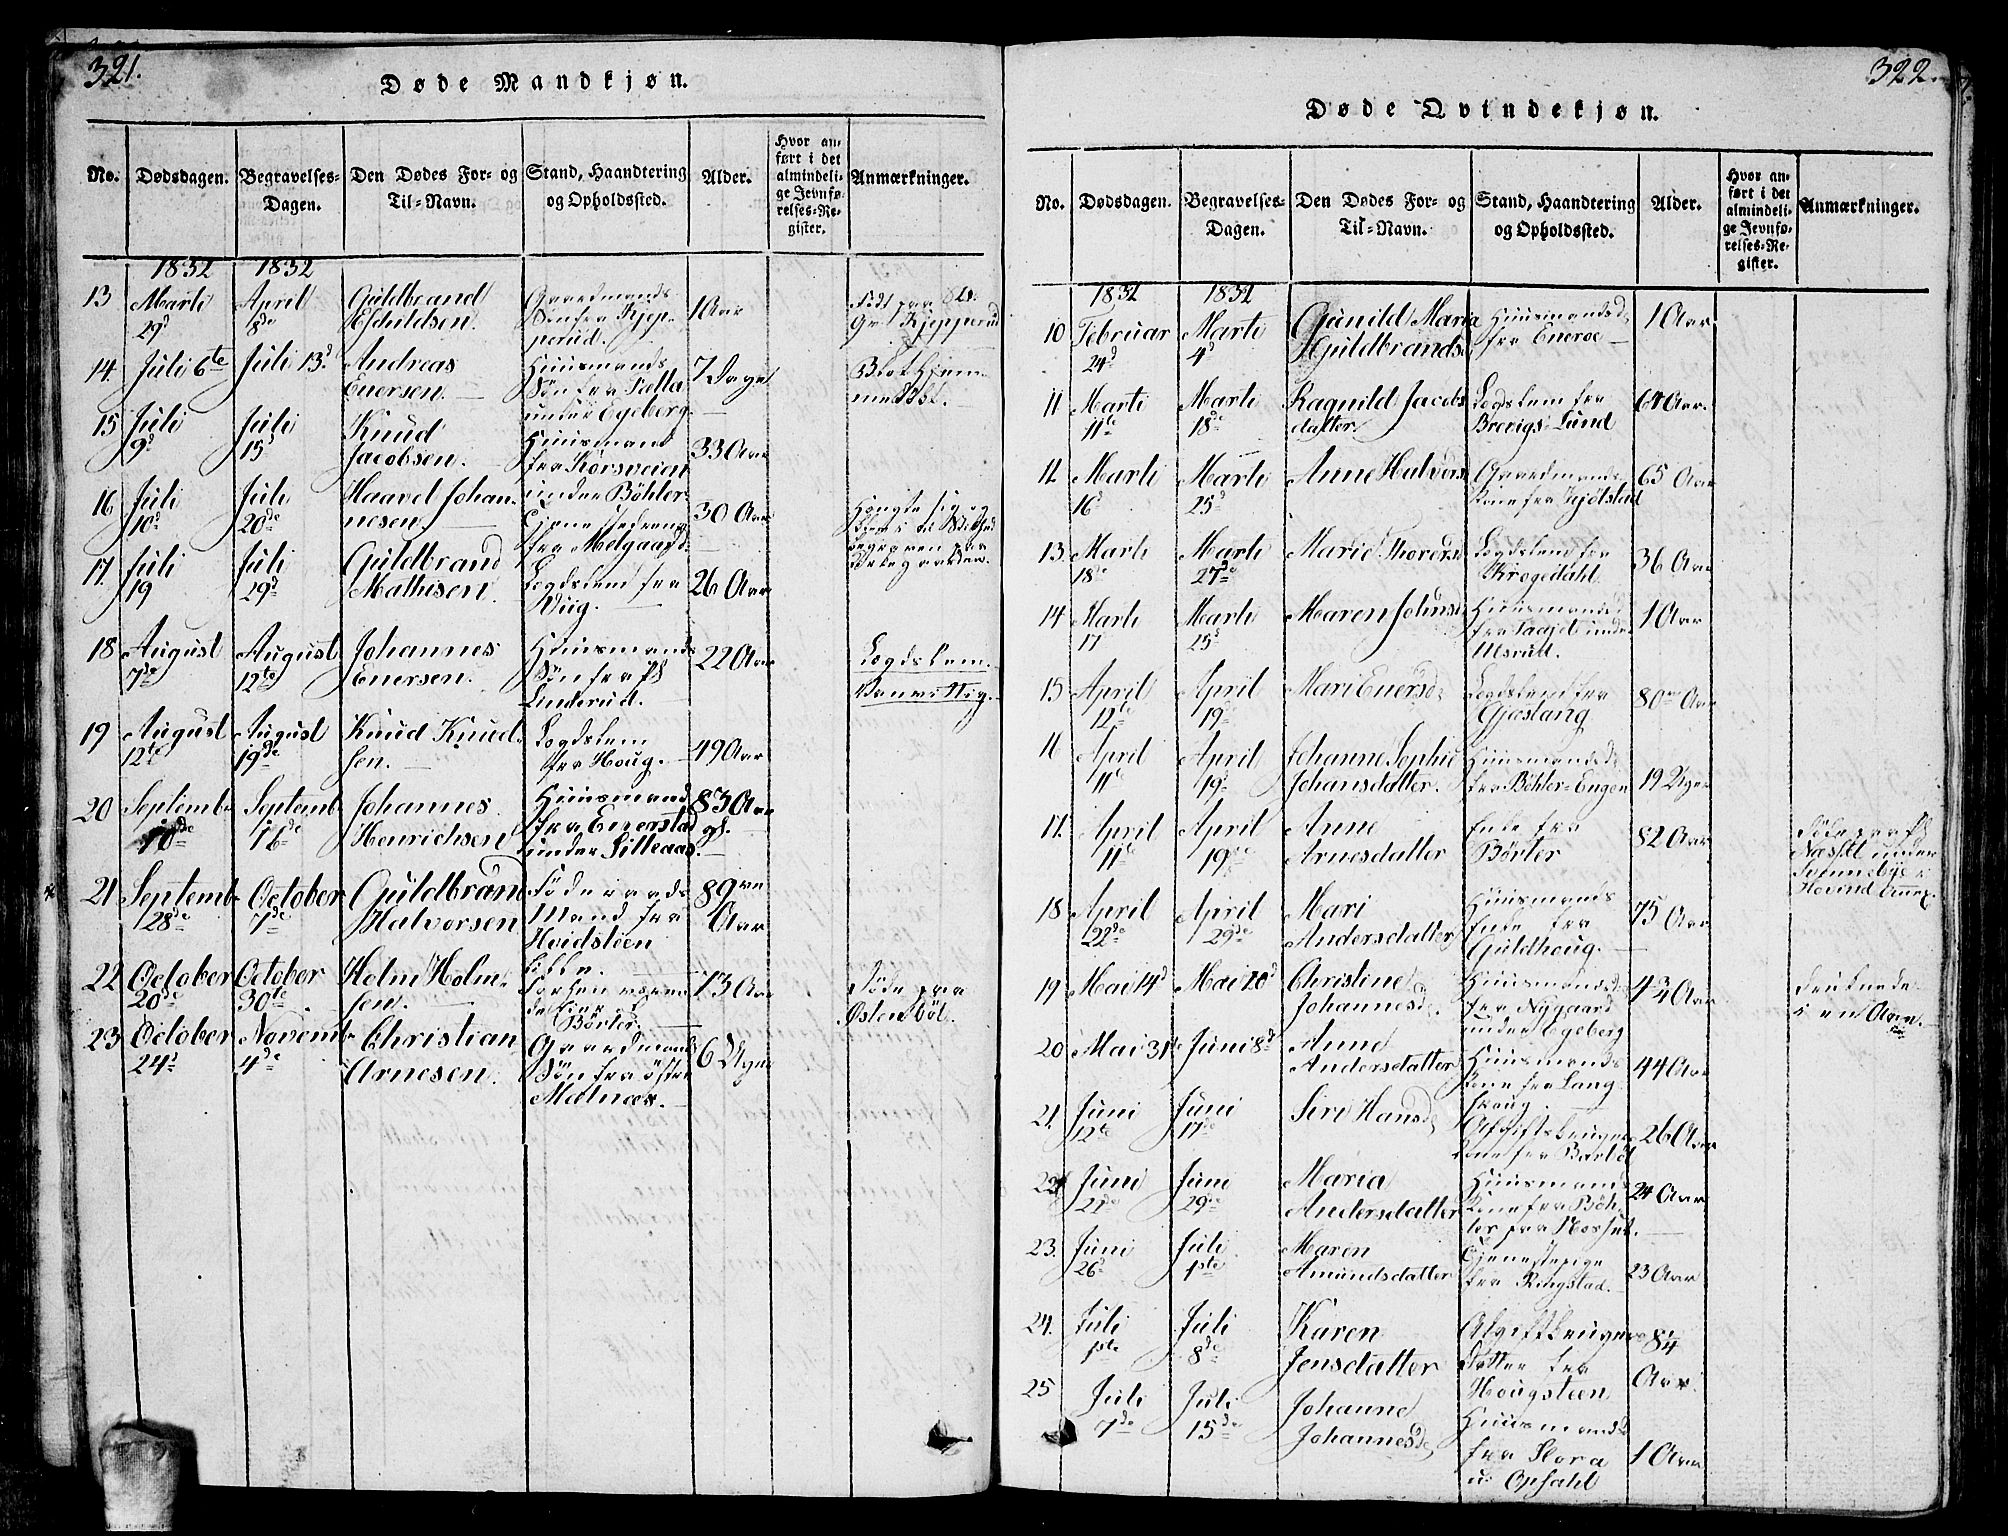 321.
Døde Mandkjøn.
No.
Dødsdagen.
Begravelses-
Dagen.
Den Dødes For- og
Til-Navn.
Stand, Haandtering
og Opholdssted.
Alder.
Hvor an-
ført i det
almindeli-
ge Jevnfø-
relses-Re-
gister.
Anmærkninger.
1832 1832
13 Marti 29d April 8de Guldbrand Eskildsen. Gaardmands Søn fra Kjep-
perud. 1 Aar Født paa
Kjepperud
14. Juli 6te Juli 13d Andreas
Enersen. Huusmands
Søn fra
under Egeberg. 7 Dage
15 Juli 9d Juli 15d Knud
Jacobsen. Huusmand
fra Korsveien
under Böhler 33 Aar
16 Juli 10d Juli 20de Haavel Johan-
nesen Tjenestedreng
fra Melgaard 30 Aar Hængte sig og
17. Juli 19 Juli 29d Guldbrand
Mathisen Lægdslem fra
Wiig. 26 Aar
18 August 7de August 12te Johannes
Enersen. Huusmands
Søn fra
Linderud. 22 Aar Lægdslem.
Vanvittig.
19 August 12te August 19de Knud Knud-
sen. Lægdslem
fra Houg. 49 Aar
20 Septemb 10de Septemb 16de Johannes
Henrichsen Huusmand
fra Enerstad
under Lilleaas. 83 Aar
gl.
21 Septemb 28de October 7de Guldbrand
Halvorsen Föderaads
Mand fra
Hvidsteen
Lille. 89
Aar
22 October 20de October 30te Holm Holm-
sen. Forhenværen-
de Eier
Börter. 73 Aar Döde paa
Östenböl.
23 October 24d Novemb 4de Christian
Arnesen. Gaardmands
Søn fra östre
Malnæs. 6 Uger
322.
Døde Qvindekjøn.
No.
Dødsdagen.
Begravelses-
Dagen.
Den Dødes For- og
Til-Navn.
Stand, Haandtering
og Opholdssted.
Alder.
Hvor an-
ført i det
almindeli-
ge Jevnfø-
relses-Re-
gister.
Anmærkninger.
1832 1832
10 Februar 24d Marti 4d Gunild Maria
Guldbrands Huusmandsd
fra Eneroe 1 Aar
11 Marti 11te Marti 18de Ragnild Jacobs
datter Lægdslem fra
Brevigs Lund 64 Aar.
12. Marti 16d Marti 25d Anne Halvors Gaardmands
Kone fra Kjölstad 65 Aar
13. Marti 18de Marti 27de Marie Thorers Lægdslem fra
Krogedahl. 36 Aar
14 Marti 17 Marti 25d Maren Johns Huusmandsd
fra under
Ulsrud. 1 Aar
15 April 12te April 19de Mari Enersd Lægdslem fra
Gjæstang 80 Aar
16 April 11te April 19d Johanne Sophie
Johansdatter. Huusmandsd
fra Böhler-Engen 19 Uger
17. April 11te April 19de Anne
Arnesdatter Enke fra
Börter 82 Aar Döde paa
under
Svenneby i
Hovind Annex.
18 April 22de April 29de Mari
Andersdatter Huusmands
Enke fra
Guldhoug. 75 Aar
19 Mai 14d Mai 20d Christine
Johannesd. Huusmandsd
fra Nygaard
under Egeberg 4 3/4 Aar Druknede
i en Aaen.
20 Mai 31te Juni 8d Anne
Andersdatter Huusmands
Kone fra Lang-
skoug. 44 Aar
21. Juni 12te Juni 17de Siri Hansd Afgiftsbruger
Kone fra Barböl 26 Aar
22 Juni 21de Juni 29de Maria
Andersdatter Huusmands
Kone fra Böh-
ler fra 24 Aar
23. Juni 26d Juli 1ste Maren
Amundsdatter Tjenestepige
fra Ringstad. 23 Aar
24. Juli 1ste Juli 8de Karen
Jensdatter Afgiftsbruger
Datter fra
Hougsteen 8 1/4
Aar
25 Juli 7de Juli 15de Johanne
Johannesd Huusmandsd
fra Flora
u: Opsahl 1 Aar